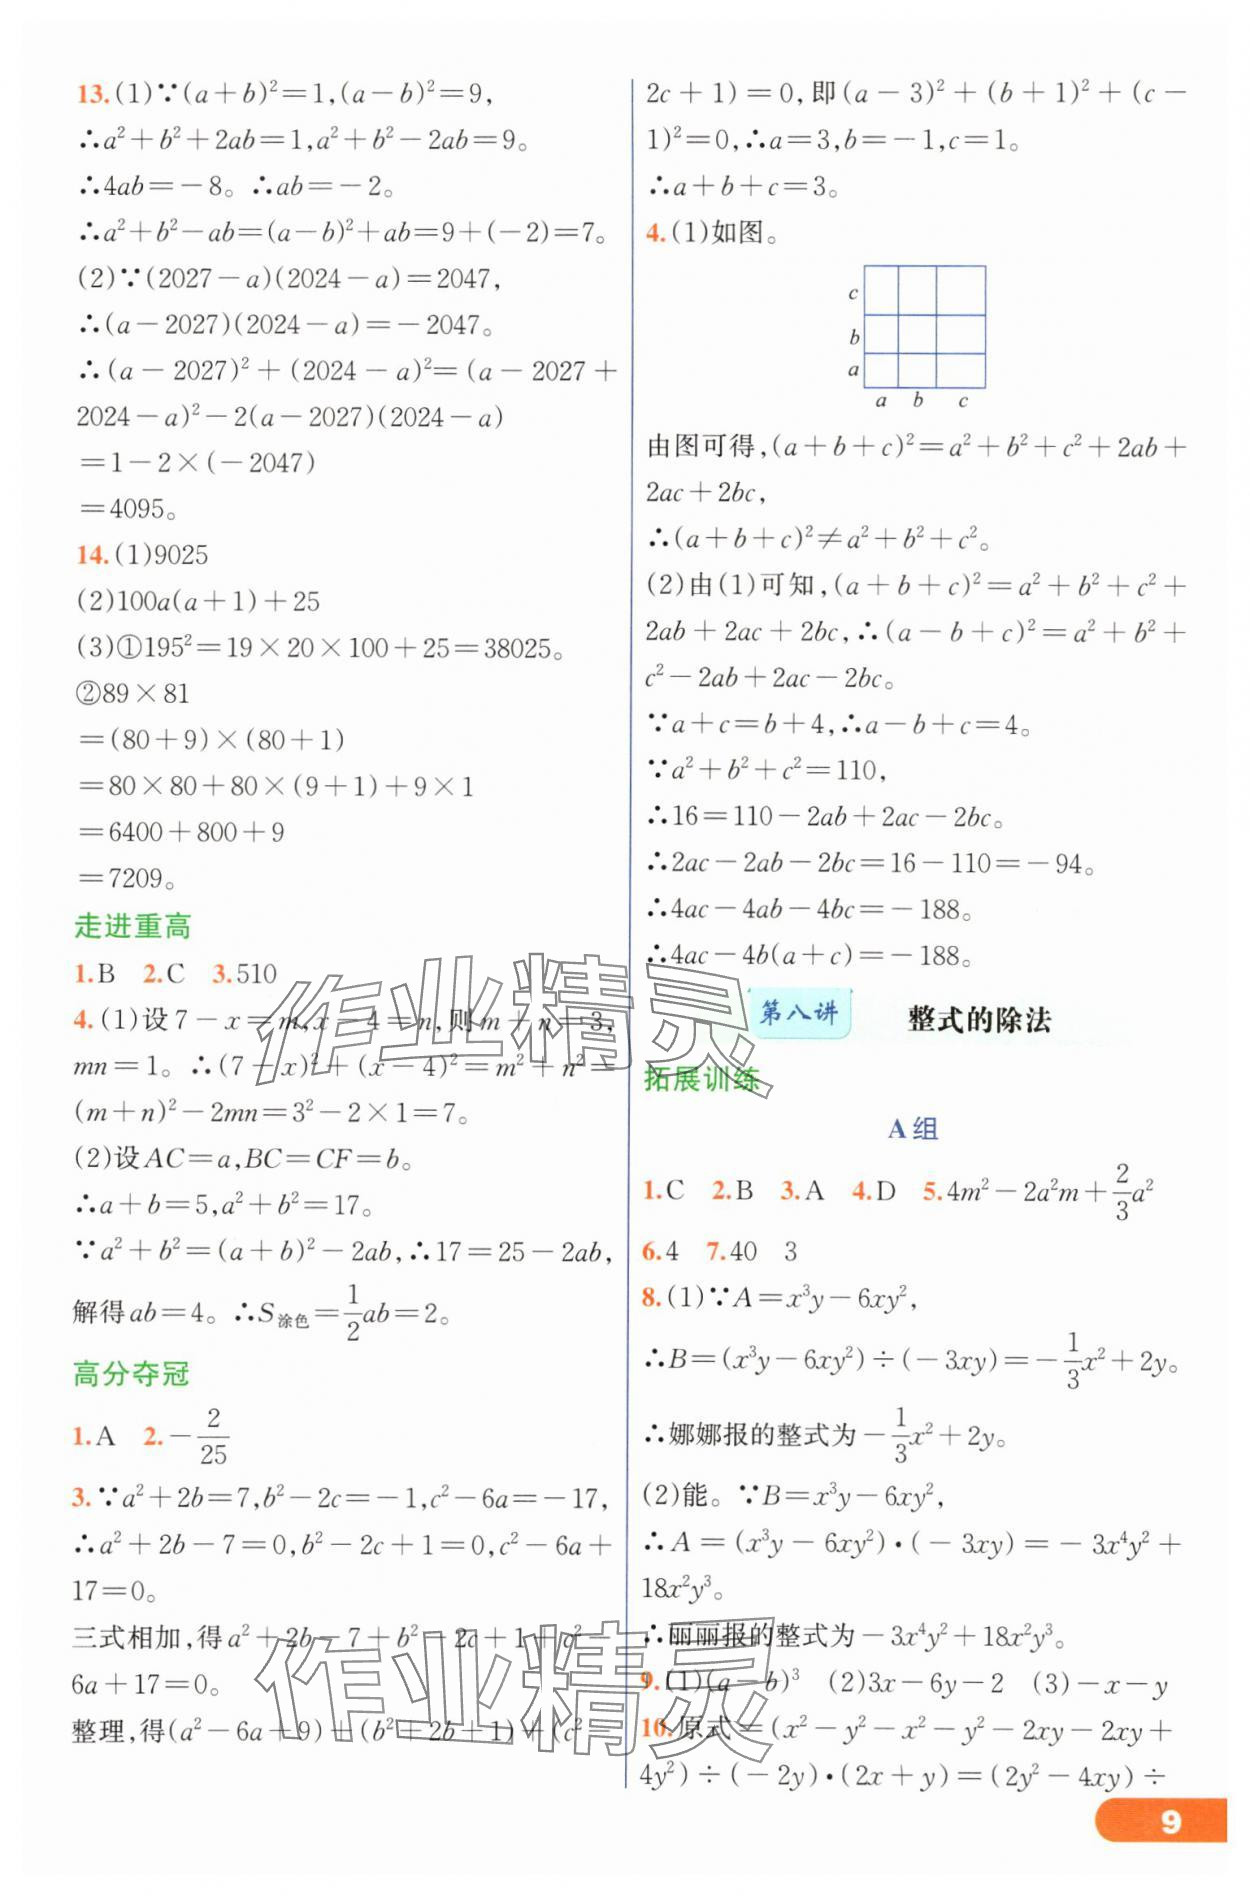 13.(1)∵(a+b)²=1,(a-b)²=9,
∴a²+b²+2ab=1,a²+b²-2ab=9。
∴4ab=-8。∴ab=-2。
∴a²+b²-ab=(a-b)²+ab=9+(-2)=7。
(2)∵(2027-a)(2024-a)=2047,
∴(a-2027)(2024-a)=-2047。
∴(a-2027)²+(2024-a)²=(a-2027+
2024-a)²-2(a-2027)(2024-a)
=1-2×(-2047)
=4095。
14.(1)9025
(2)100a(a+1)+25
(3)①195²=19×20×100+25=38025。
②89×81
=(80+9)×(80+1)
=80×80+80×(9+1)+9×1
=6400+800+9
=7209。
走进重高
1.B 2.C 3.510
4.(1)设7-x=m,x-4=n,则m+n=3,
mn=1。∴(7-x)²+(x-4)²=m²+n²=
(m+n)²-2mn=3²-2×1=7。
(2)设AC=a,BC=CF=b。
∴a+b=5,a²+b²=17。
∵a²+b²=(a+b)²-2ab,∴17=25-2ab,
解得ab=4。∴S涂色=1/2ab=2。
高分夺冠
1.A 2.-2/25
3.∵a²+2b=7,b²-2c=-1,c²-6a=-17,
∴a²+2b-7=0,b²-2c+1=0,c²-6a+
17=0。
三式相加,得a²+2b-7+b²-2c+1+c²-
6a+17=0。
整理,得(a²-6a+9)+(b²+2b+1)+(c²-
2c+1)=0,即(a-3)²+(b+1)²+(c-
1)²=0,∴a=3,b=-1,c=1。
∴a+b+c=3。
4.(1)如图。
c
b
a
a b c
由图可得,(a+b+c)²=a²+b²+c²+2ab+
2ac+2bc,
∴(a+b+c)²≠a²+b²+c²。
(2)由(1)可知,(a+b+c)²=a²+b²+c²+
2ab+2ac+2bc,∴(a-b+c)²=a²+b²+
c²-2ab+2ac-2bc。
∵a+c=b+4,∴a-b+c=4。
∵a²+b²+c²=110,
∴16=110-2ab+2ac-2bc。
∴2ac-2ab-2bc=16-110=-94。
∴4ac-4ab-4bc=-188。
∴4ac-4b(a+c)=-188。
第八讲 整式的除法
拓展训练
A组
1.C 2.B 3.A 4.D 5.4m²-2a²m+2/3a²
6.4 7.40 3
8.(1)∵A=x³y-6xy²,
∴B=(x³y-6xy²)÷(-3xy)=-1/3x²+2y。
∴娜娜报的整式为-1/3x²+2y。
(2)能。∵B=x³y-6xy²,
∴A=(x³y-6xy²)·(-3xy)=-3x⁴y²+
18x²y³。
∴丽丽报的整式为-3x⁴y²+18x²y³。
9.(1)(a-b)³ (2)3x-6y-2 (3)-x-y
10.原式=(x²-y²-x²-y²-2xy-2xy+
4y²)÷(-2y)·(2x+y)=(2y²-4xy)÷
9
作业精灵
作业精灵